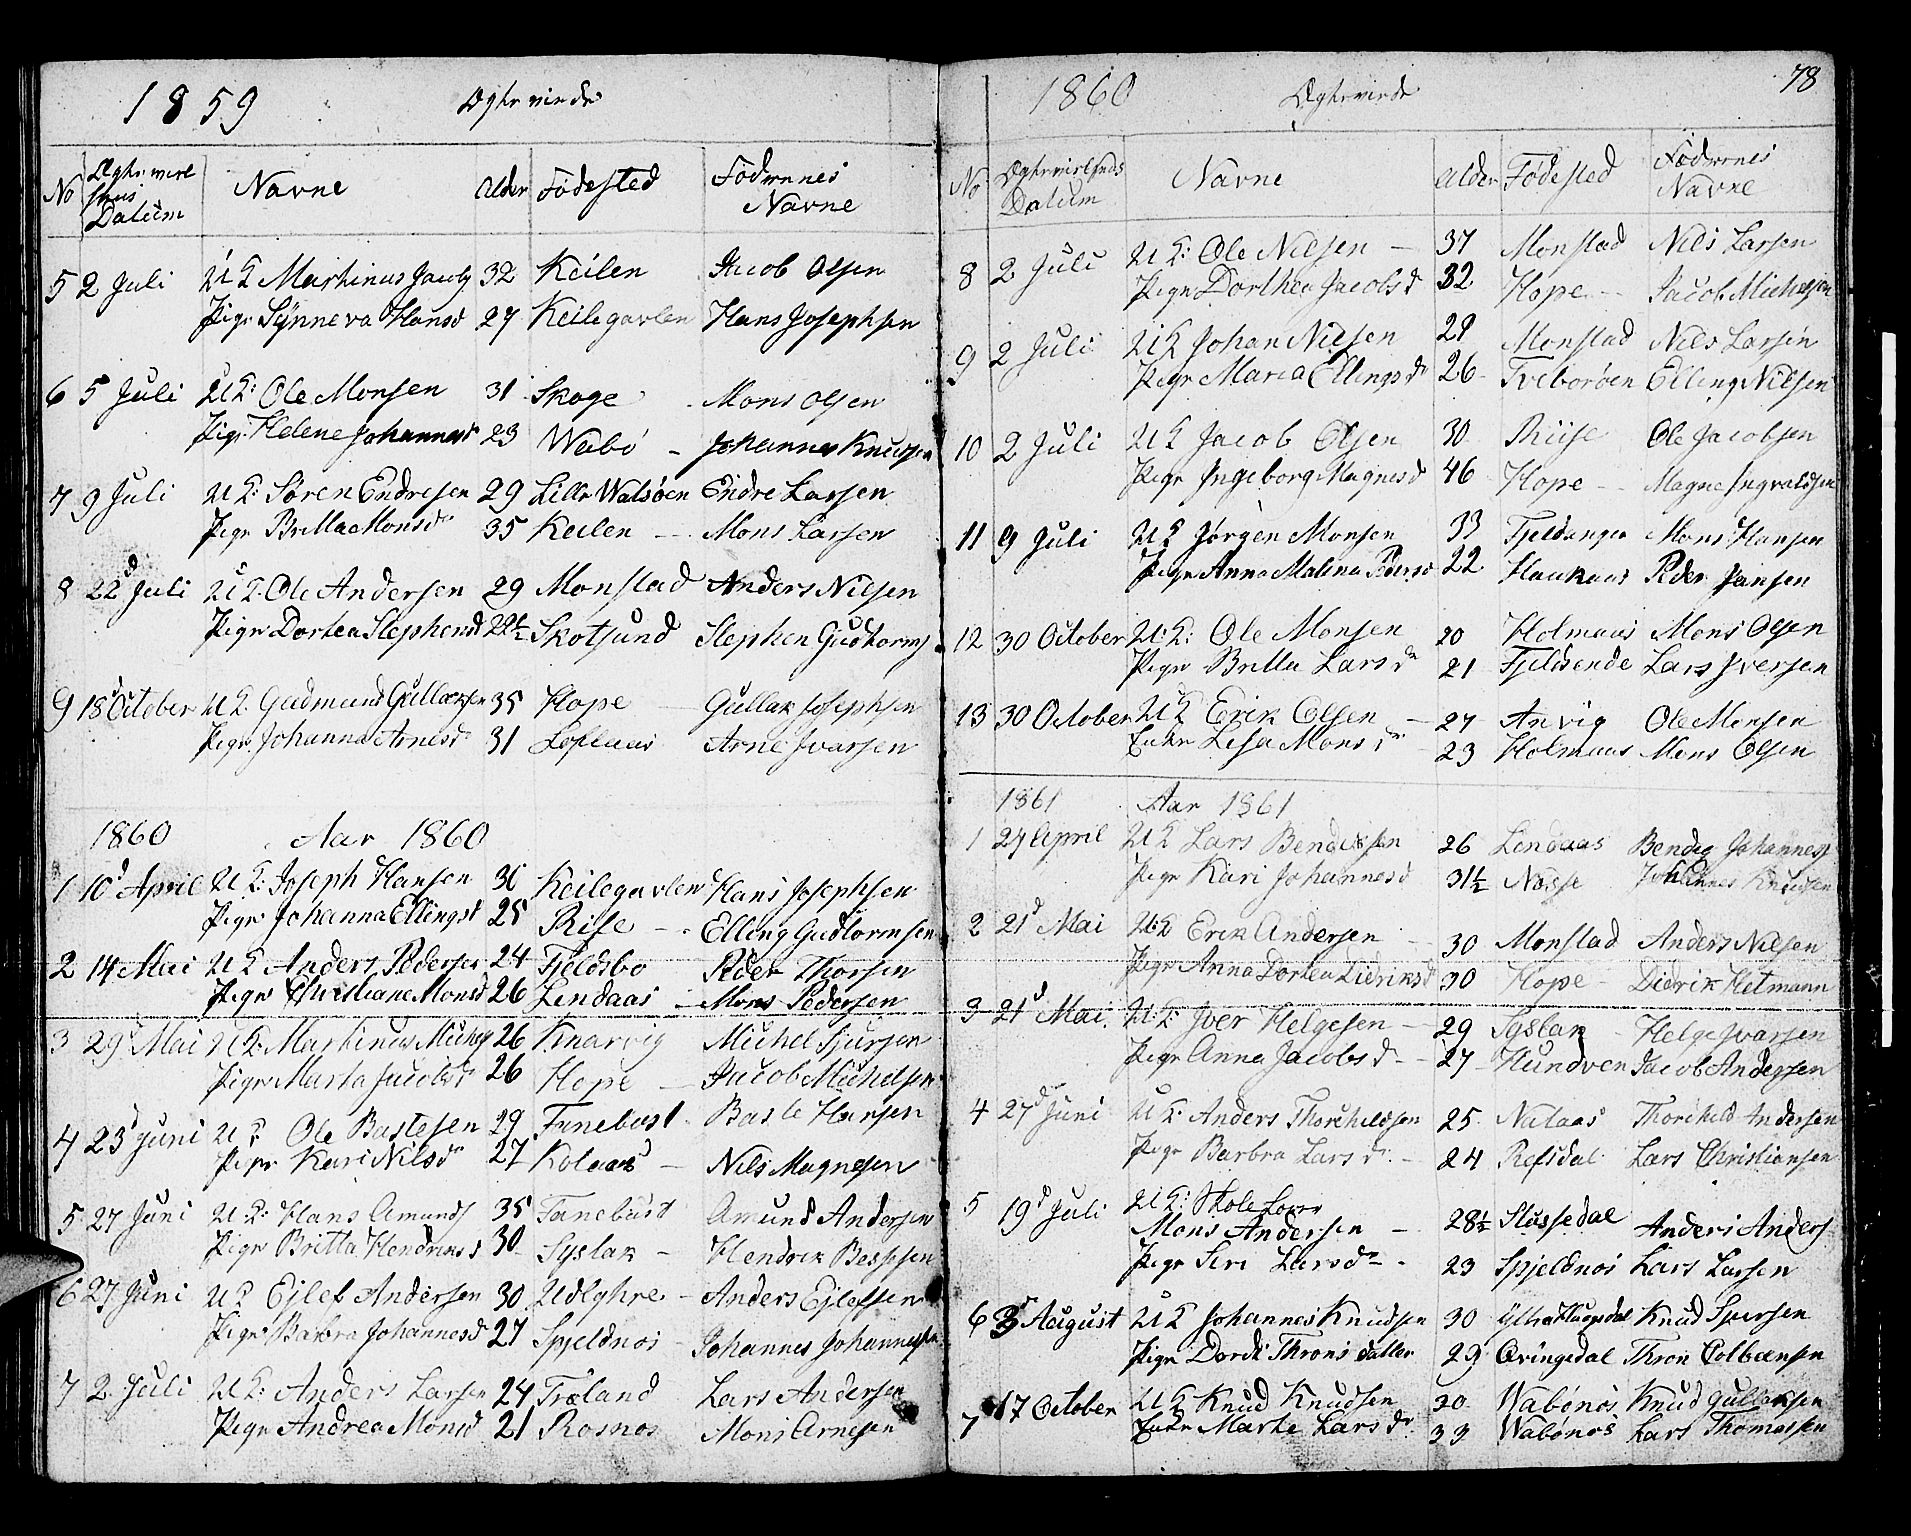 1859 Ægtevirde
No Ægtevielsens Datum Navne Alder Födested Fædrenes Navne
5 2 Juli U K Martinus Jacobs 32 Keilen Jacob Olsen
Pige Synneva Hansd 27 Keilegavlen Hans Josephsen
6 5 Juli U K: Ole Monsen 31 Skage Mons Olsen
Pige Helene Johannesd 23 Wabö - Johannes Knudsen
7 9 Juli U K: Sören Endresen 29 Lille Walsöen Endre Larsen
Pige Britta Monsdr 35 Keilen - Mons Larsen
8 22d Juli U K. Ole Andersen 29 Monstad Anders Nilsen
Pige Dortea Stephensd 22½ Skotsund Stephen Gudtorms
9 18d October U K. Gudmund Gullaksen 35 Hope Gullak Josephsen
Pige Johanna Arnesd 31 Loflaas Arne Ivarsen
1860 Aar 1860
1 10d April U K: Joseph Hansen 30 Keilegavlen Hans Josephsen
Pige Johanna Ellingsd 25 Rise - Elling Gudtormsen
2 14 Mai U K Anders Pedersen 24 Fjeldsbo Peder Thorsen
Pige Christiane Monsd 26 Lendaas - Mons Pedersen
3 29d Mai U K. Martinus Michels 26 Knarvig Michel Sjursen
Pige Marta Jacobsdr 26 Hope - Jacob Michelsen
4 23d Juni U K Ole Bastesen 29 Fanebust Baste Hansen
Pige Kari Nilsdr 27 Kolaas - Nils Magnesen
5 27 Juni U K: Hans Amunds 35 Fanebust Amund Andersen
Pige Britta Hendriksd 30 Syslak - Hendrik Bessesen
6 27 Juni U K Ejlef Andersen 30 Udlghre - Anders Ejlefsen
Pige Barbra Johannesd 27 Spjeldnos Johannes Johannessen
7 2 Juli U K: Anders Larsen 24 Træland Lars Andersen
Pige Andrea Monsd 21 Rosnos Mons Arnesen
1860 Ægtevirde 78
No Ægtevielsens Datum Navne Alder Födested Fædrenes Navne
8 2 Juli U K: Ole Nilsen - 37 Monstad Nils Larsen
Pige Dorthea Jacobsd 32 Hope - Jacob Michelsen
9 2 Juli U K Johan Nilsen 29 Monstad Nils Larsen
Pige Maria Ellingsdr 26 Tveboröen Elling Nilsen
10 2 Juli U K Jacob Olsen 30 Riise Ole Jacobsen
Pige Ingeborg Magnesd 46 Hope - Magne Ingvaldsen
11 9 Juli U K Jörgen Monsen 33 Fjeldanger Mons Hansen
Pige Anna Malena Pedersd 22 Haukaas Peder Jansen
12 30 October U: K: Ole Monsen 20 Holmaas Mons Olsen
Pige Britta Larsdr 21 Fjeldsende Lars Iversen
13 30 October U K Erik Olsen - 27 Anvig Ole Monsen
Enke Lisa Monsdr 23 Holmaas Mons Olsen
1861 Aar 1861
1 24 April U K Lars Bendiksen 26 Lendaas Bendig Johanness
Pige Kari Johannesd 31½ Nosse Johannes Knudsen
2 21d Mai U K Erik Andersen - 30 Monstad Anders Nilsen
Pige Anna Dortea Didriksd 30 Hope - Didrik Hetmann
3 21d Mai U K: Iver Helgesen - 29 Syslak - Helge Ivarsen
Pige Anna Jacobsd - 27 Hundven Jacob Andersen
4 27d Juni U K: Anders Thorchildsen 25 Nataas Thorchild Andersen
Pige Barbra Larsdr - 24 Refsdal Lars Christiansen
5 19d Juli U K: Skolelærer
Mons Andersen - 28½ Slossedal Anders Anders
Pige Siri Larsdr - 23 Spjeldnos Lars Larsen
6 3 August U K Johannes Knudsen 30 Knud Sjursen
Pige Dordi Throns datter 29 Qvingedal Thron Colbensen
7 17 October U K Knud Knudsen 30 Wabönos Knud Gullaksen
Enke Marte Larsdr 33 Wabönos Lars Thomassen